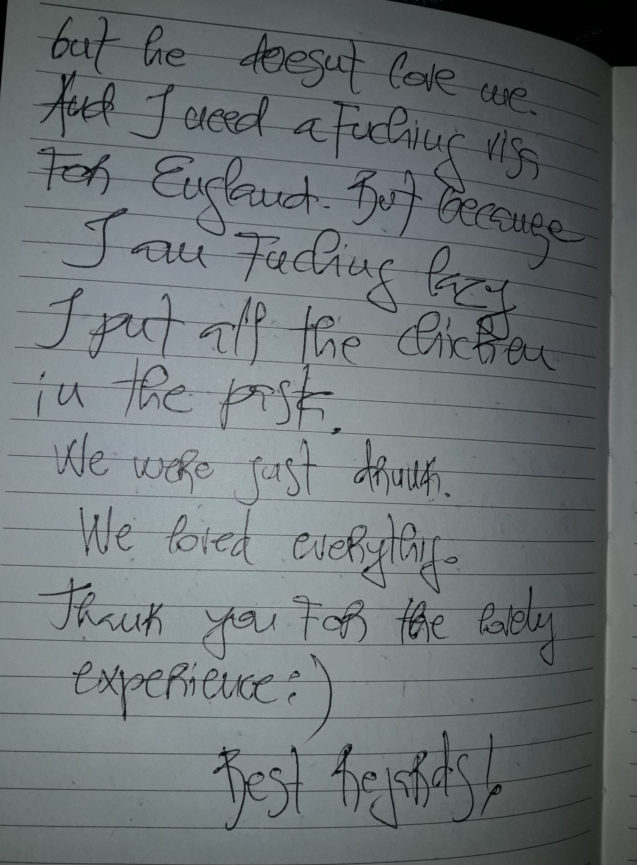 but he doesnt love me.
And I need a fucking visa
For England. But because
I am Fucking lazy
I put all the chicken
in the past.
We were just drunk.
We loved everythig.
Thank you For the lovely
experience:)
Best Regards!